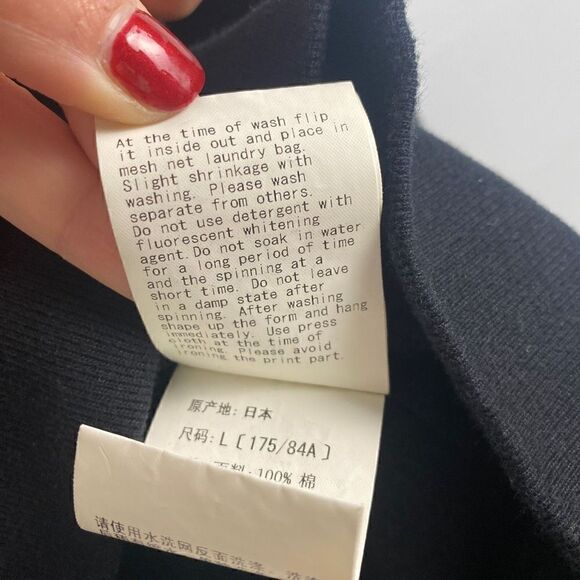 At the time of wash flip
it inside out and place in
mesh net laundry bag.
Slight shrinkage with
washing. Please wash
separate from others.
Do not use detergent with
fluorescent whitening
agent. Do not soak in water
for a long period of time
and the spinning at a
short time. Do not leave
in a damp state after
spinning. After washing
shape up the form and hang
immediately. Use press
cloth at the time of
ironing. Please avoid
ironing the print part.
原产地: 日本
尺码: L [175/84A]
面料: 100% 棉
请使用水洗网反面洗涤, 洗涤